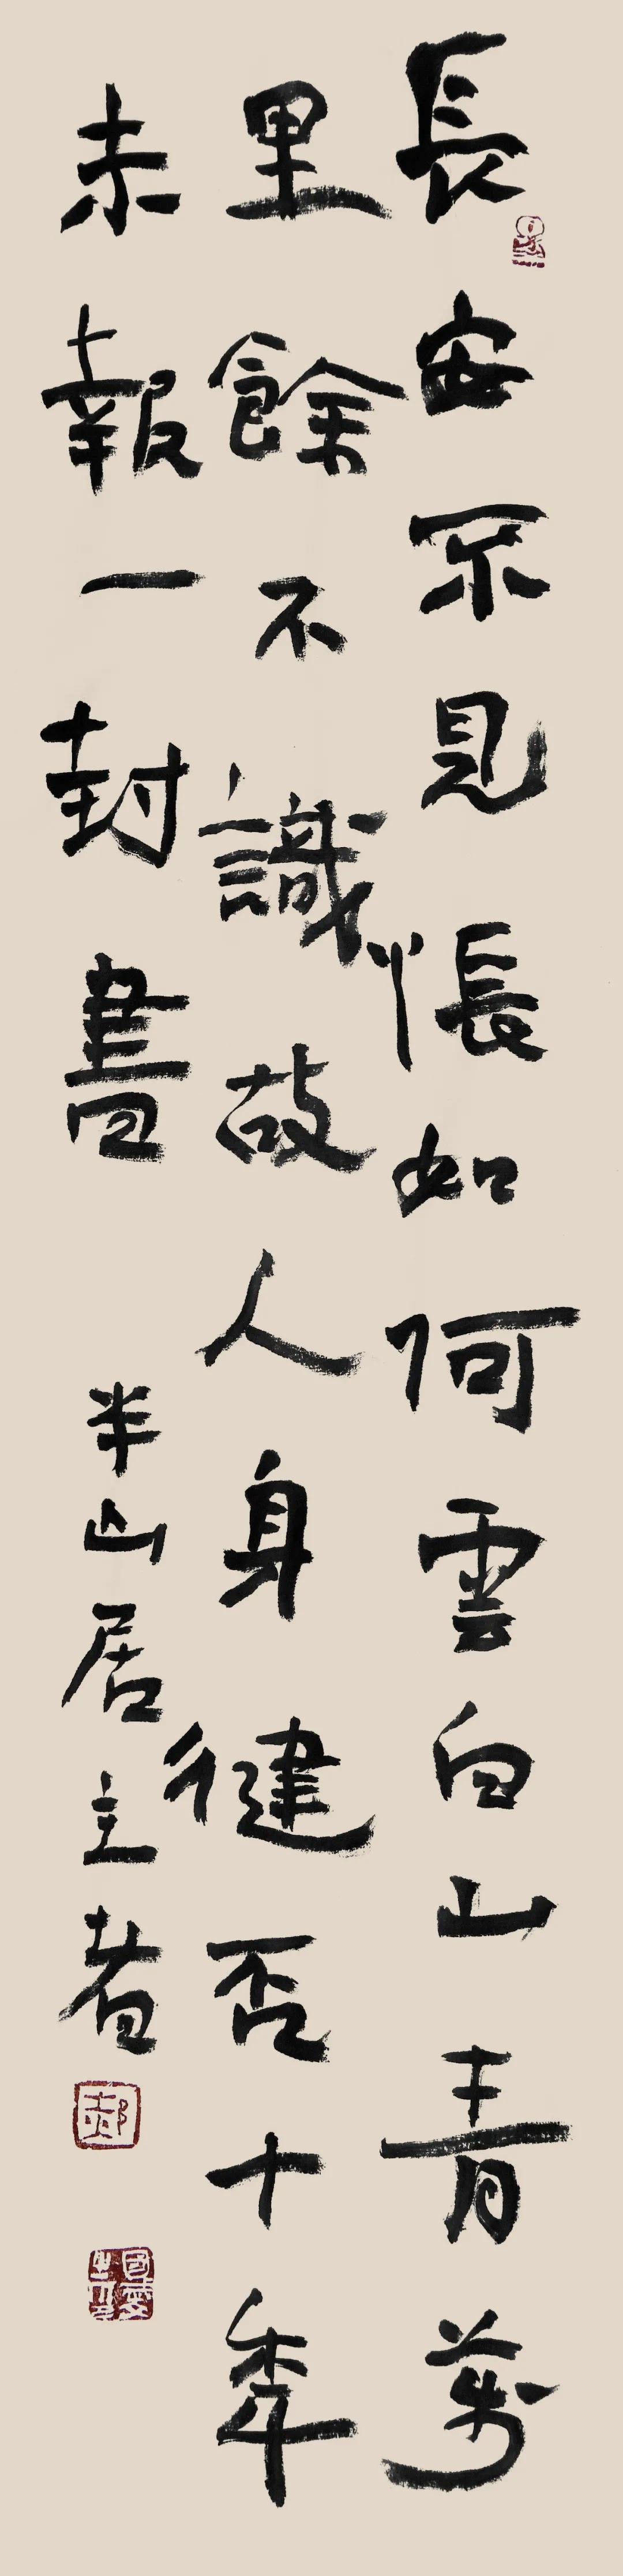 長安不見悵如何雲白山青萬
里餘不識故人身健否十年
未報一封書
半山居主者
郝